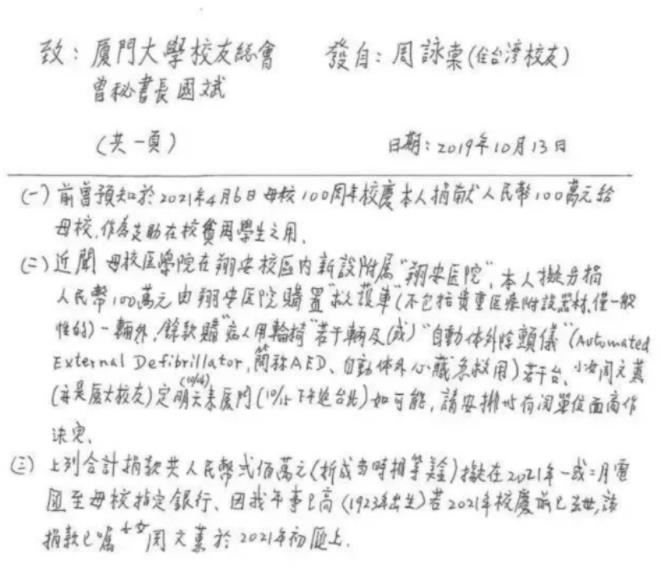 致：廈門大學校友總會 發自：周詠棠(住台湾校友)
曾秘書長國斌
(共一頁) 日期：2019年10月13日
(一)前曾預知於2021年4月6日母校100周年校慶本人捐献人民幣100萬元給
母校，作為支助在校貧困學生之用。
(二)近聞 母校医學院在翔安校區内新設附属"翔安医院"，本人擬另捐
人民幣100萬元由翔安医院購置"救護車"(不包括貴重医療附設器材，僅一般
性的)一輛外，餘款購"病人用輪椅"若干輛及(或)"自動体外除顫儀"(Automated
External Defibrillator，簡称AED、自動体外心臟急救用)若干台。小女周文薰
(亦是廈大校友)定明天(10/14)來廈門(10/15下午返台北)如可能，請安排时有関單位面商作
決定。
(三)上列合計捐款共人民幣弍佰萬元(折成當時相等美金)擬在2021年一或二月電
匯至母校指定銀行、因我年事已高(1923年出生)若2021年校慶前已去世，該
捐款已嘱小女周文薰於2021年初匯上.